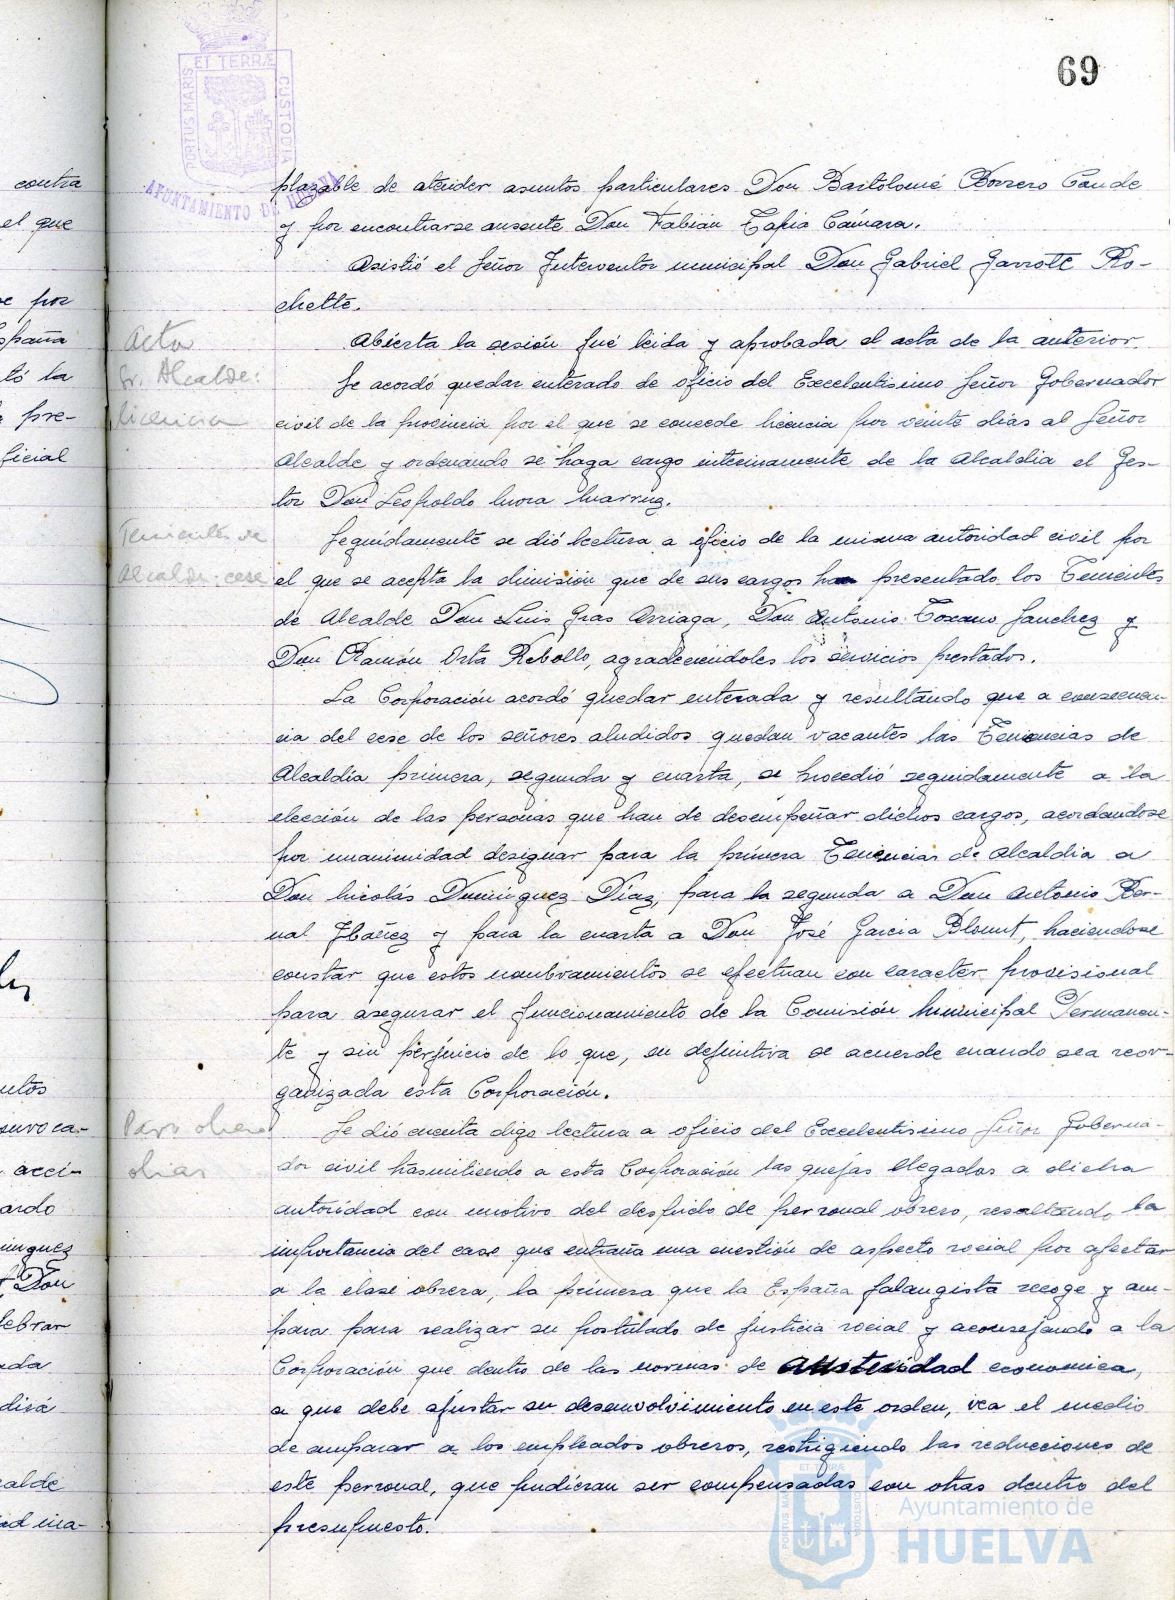 69
PORTUS MARIS ET TERRÆ CUSTODIA
AYUNTAMIENTO DE HUELVA
contra
el que
se por
España
tó la
pre-
ficial
untos
acci-
Don
ebrar
ada
dirá
calde
plazable de atender asuntos particulares Don Bartolomé Borrero Conde
y por encontrarse ausente Don Fabián Tapia Cámara.
Asistió el Señor Interventor municipal Don Gabriel Garrote Ro-
chette.
Acta
Abierta la sesión fué leida y aprobada el acta de la anterior.
Sr. Alcalde:
licencia
Se acordó quedar enterado de oficio del Excelentísimo Señor Gobernador
civil de la provincia por el que se concede licencia por veinte días al Señor
Alcalde y ordenando se haga cargo interinamente de la Alcaldia el Ges-
tor Don Leopoldo Mora
Tenientes de
Alcalde: cese
Seguidamente se dió lectura a oficio de la misma autoridad civil por
el que se acepta la dimisión que de sus cargos han presentado los Tenientes
de Alcalde Don Luis Gras Arriaga, Don Antonio Toscano Sanchez y
Don Ramón Orta Rebollo, agradeciendoles los servicios prestados.
La Corporación acordó quedar enterada y resultando que a consecuen-
cia del cese de los señores aludidos quedan vacantes las Tenencias de
Alcaldia primera, segunda y cuarta, se procedió seguidamente a la
elección de las personas que han de desempeñar dichos cargos, acordandose
por unanimidad designar para la primera Tenencias de Alcaldia a
Don Nicolás Dominguez Díaz, para la segunda a Don Antonio Ber-
nal Ibáñez y para la cuarta a Don José Garcia Blount, haciendose
constar que estos nombramientos se efectuan con caracter provisional
para asegurar el funcionamiento de la Comisión Municipal Permanen-
te y sin perjuicio de lo que, en definitiva se acuerde cuando sea reor-
ganizada esta Corporación.
Paro obre
Se dió cuenta digo lectura a oficio del Excelentísimo Señor Goberna-
dor civil trasmitiendo a esta Corporación las quejas llegadas a dicha
autoridad con motivo del despido de personal obrero, resaltando la
importancia del caso que entraña una cuestión de aspecto social por afectar
a la clase obrera, la primera que la España falangista recoge y am-
para para realizar su postulado de justicia social y aconsejando a la
Corporación que dentro de las normas de austeridad economica,
a que debe ajustar su desenvolvimiento en este orden, vea el medio
de amparar a los empleados obreros, restrigiendo las reducciones de
este personal, que pudieran ser compensadas con otras dentro del
presupuesto.
Ayuntamiento de
HUELVA